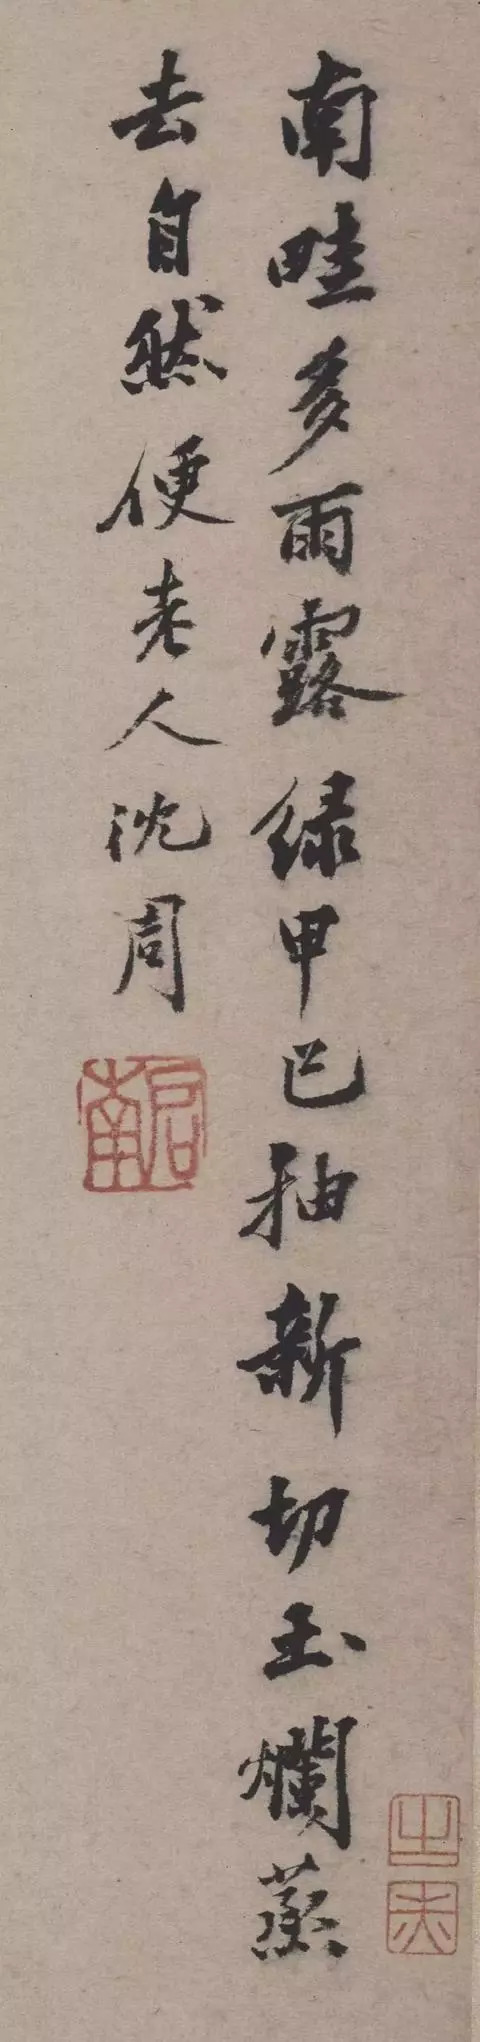 南畦多雨露緑甲已抽新切玉爛蒸
去自然便老人沈周
启南